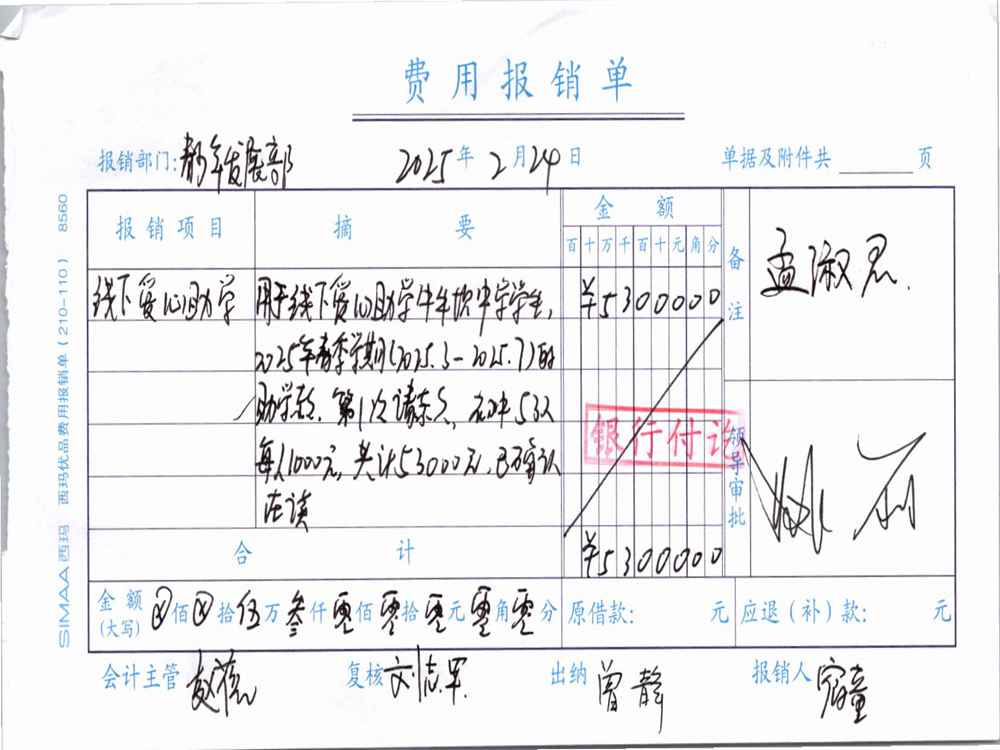 费用报销单
报销部门: 青年发展部 2025年2月24日 单据及附件共 页
报销项目 摘要 金额 备注
百十万千百十元角分
线下爱心助学 用于线下爱心助学 中学学生, ¥5300000
孟淑思.
2025年春季学期(2025.3-2025.7)的
助学款. 第1次请款, 53人
每人1000元, 共计53000元, 已确认
在读
银行付讫
领导审批
姚
合计 ¥5300000
金额(大写) ⊗佰⊗拾伍万叁仟零佰零拾零元零角零分 原借款: 元 应退(补)款: 元
会计主管 赵 复核 刘志军 出纳 曾静 报销人 童
SIMAA 西玛 西玛优品费用报销单(210-110) 8560